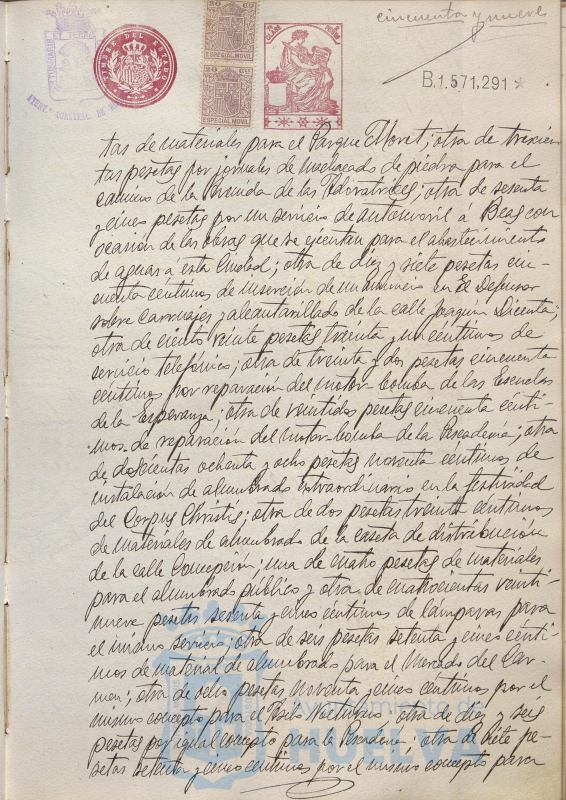 cincuenta y nueve
B.1.571,291 *
TIMBRE DEL ESTADO
20 CTS
ESPECIAL MOVIL
20 CTS
ESPECIAL MOVIL
tas de materiales para el Parque Moret; otra de trescien
tas pesetas por jornales de machacado de piedra para el
camino de la Avenida de las Adoratrices; otra de sesenta
y cinco pesetas por un servicio de automovil á Beas con
ocasion de las obras que se ejecutan para el abastecimiento
de aguas á esta Ciudad; otra de diez y siete pesetas cin-
cuenta centimos de inserción de un anuncio en El Defensor
sobre carruajes y alcantarillado de la calle Joaquin Dicenta;
otra de ciento veinte pesetas treinta y un centimos de
servicio telefónico; otra de treinta y dos pesetas cincuenta
centimos por reparación del motor-bomba de las Escuelas
de la Esperanza; otra de veintidos pesetas cincuenta centi-
mos de reparación del motor-bomba de la Pescadería; otra
de doscientas ochenta y ocho pesetas noventa centimos de
instalación de alumbrado extraordinario en la festividad
del Corpus Christi; otra de dos pesetas treinta centimos
de materiales de alumbrado de la caseta de distribución
de la calle Concepción; una de cuatro pesetas de materiales
para el alumbrado público y otra de cuatrocientas veinti-
nueve pesetas setenta y cinco centimos de lamparas para
el mismo servicio; otra de seis pesetas setenta y cinco cénti-
mos de material de alumbrado para el Mercado del Car-
men; otra de ocho pesetas noventa y cinco céntimos por el
mismo concepto para el Asilo Nocturno; otra de diez y seis
pesetas por igual concepto para la Pescadería; otra de siete pe-
setas setenta y cinco centimos por el mismo concepto para
Ayuntamiento de
HUELVA